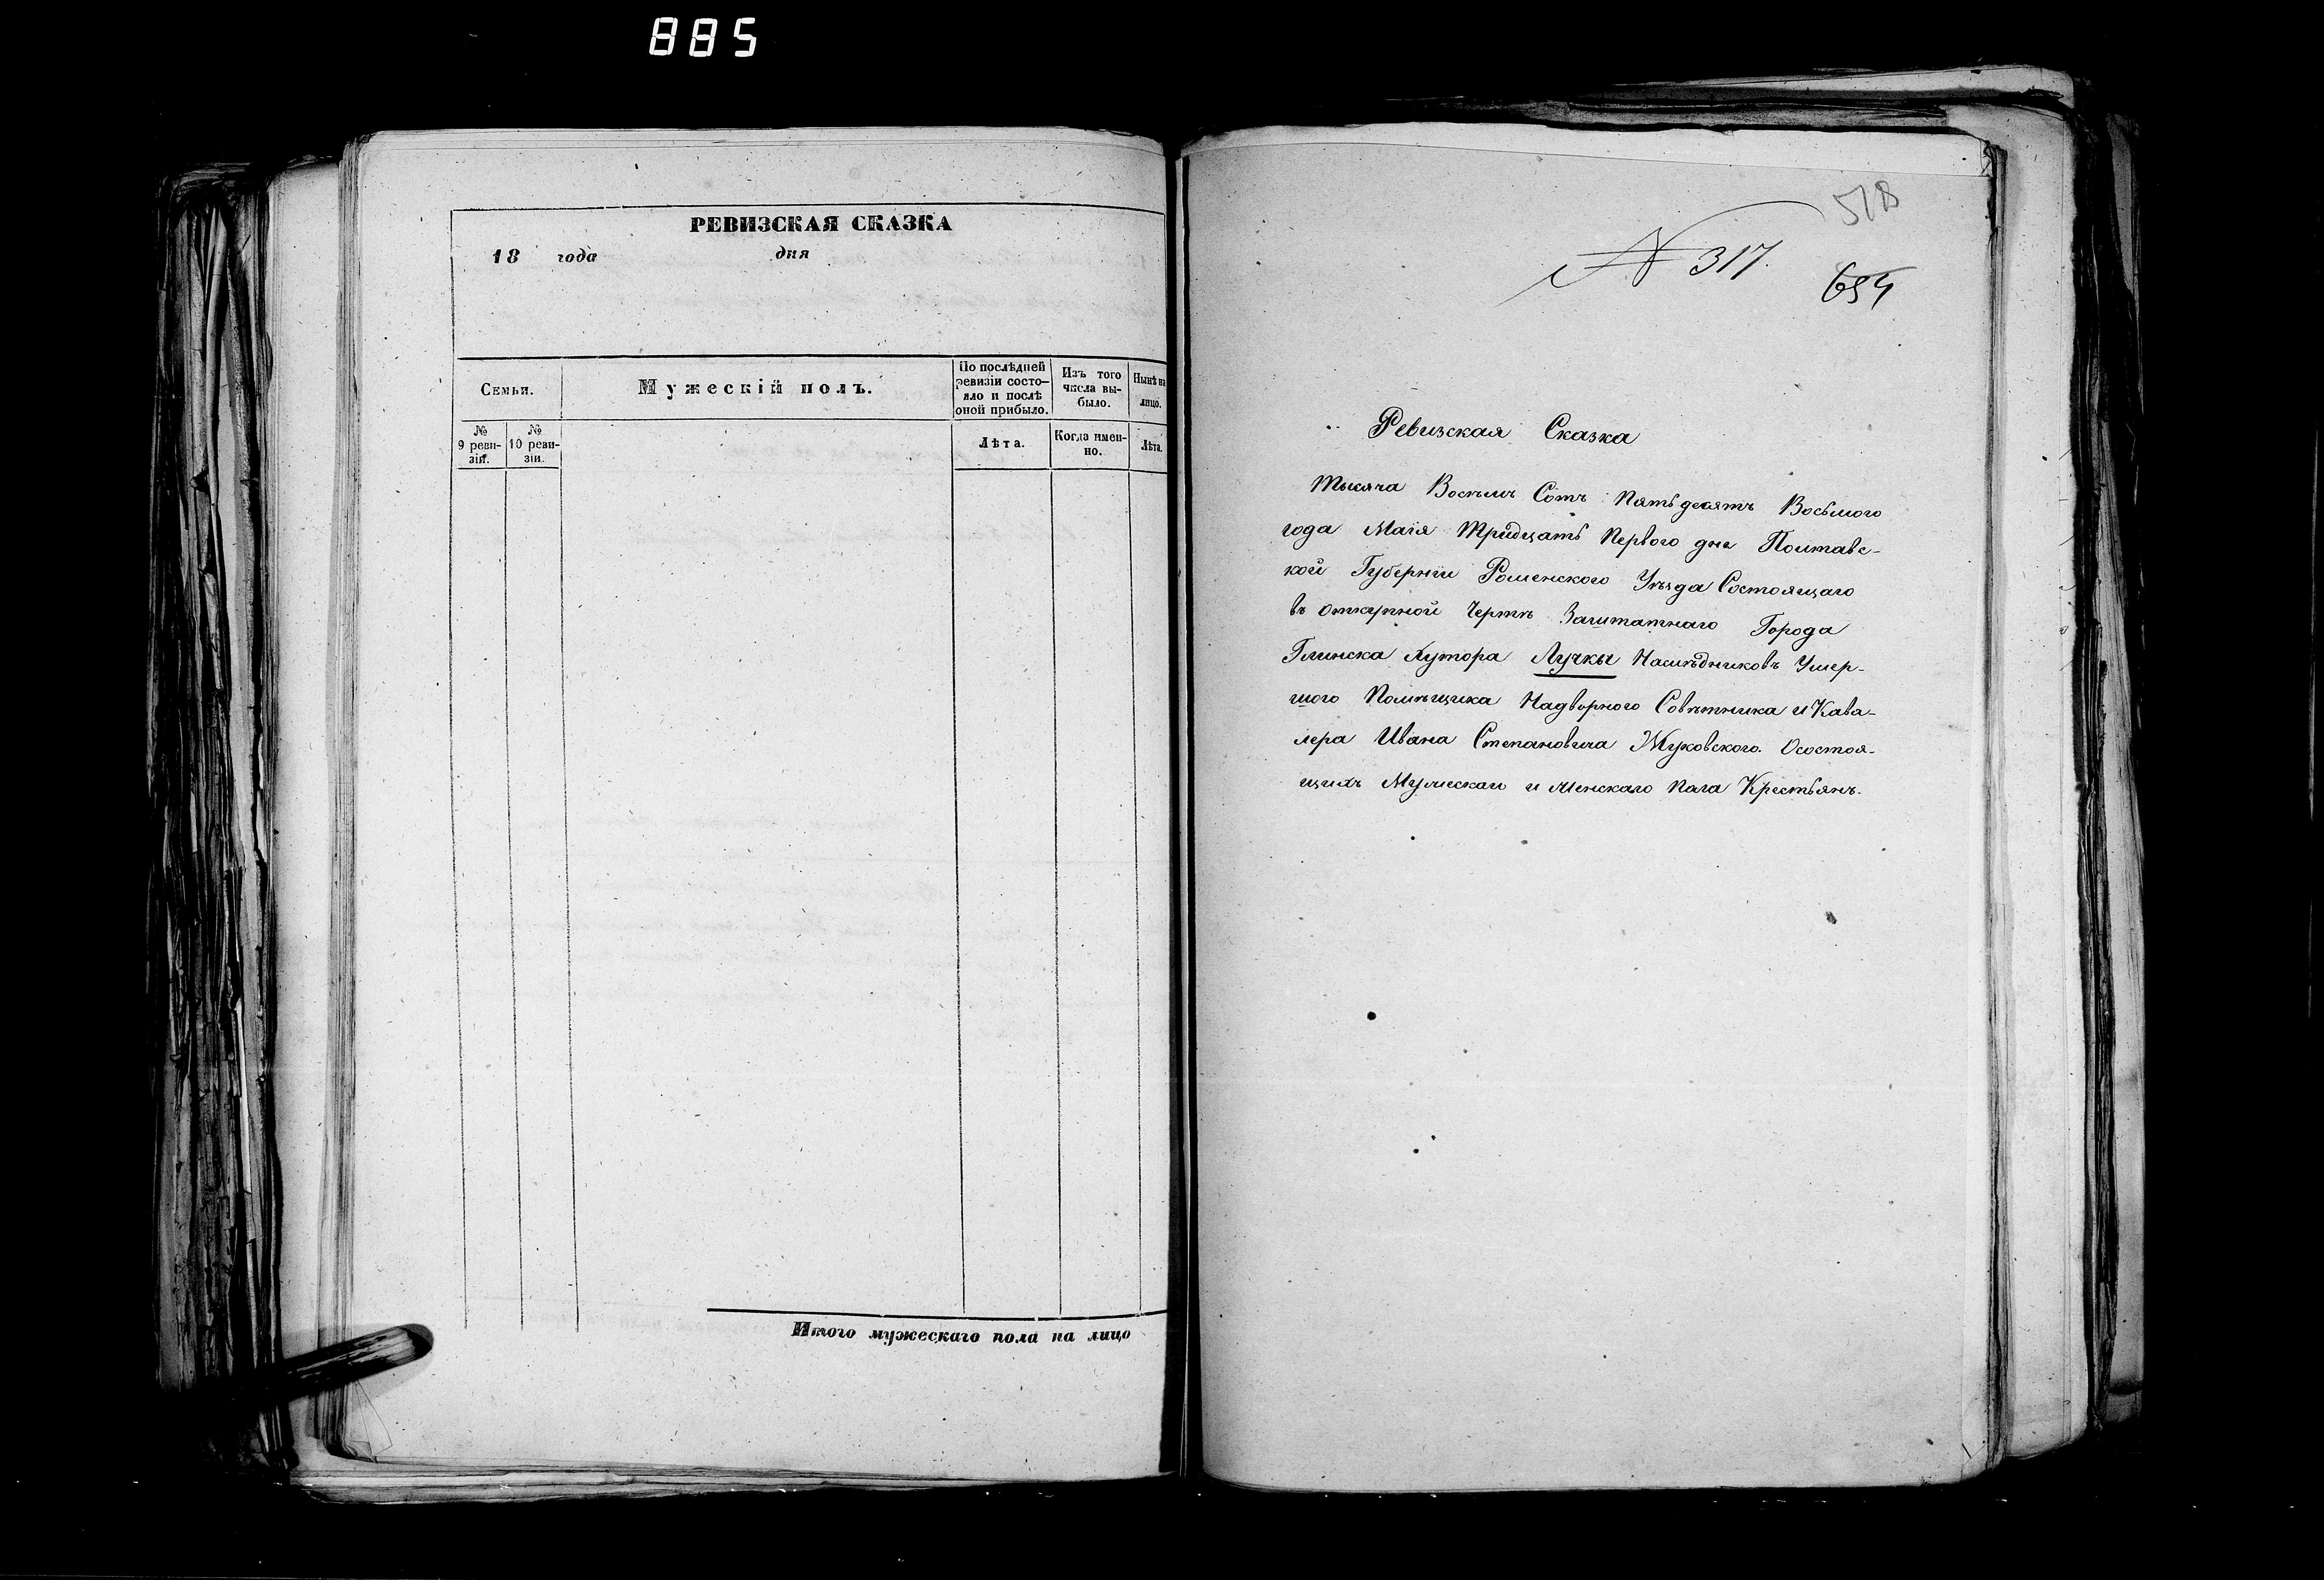 885
РЕВИЗСКАЯ СКАЗКА
18 года дня
Семьи.
Мужескій полъ.
По послѣдней ревизіи состо-
яло и послѣ оной прибыло.
Изъ того числа вы-
было.
Нынѣ на лицо.
№ 9 реви-
зіи.
№ 10 реви-
зіи.
Лѣта.
Когда имен-
но.
Лѣта.
Итого мужескаго пола на лицо
518
№ 317.
654
Ревизская Сказка
Тысяча Восѣмъ Сотъ Пятьдесятъ Восьмого
года Маія Тридцать Первого дня Полтавс-
кой Губерніи Роменского Уѣзда Состоящаго
въ откупной Чертѣ Заштатнаго Города
Глинска Хутора Лучкы Наслѣдниковъ Умер-
шого Помѣщика Надворного Совѣтника и Кава-
лера Ивана Степановича Жуковского. Осостоя-
щихъ Мужескаго и Женскаго Пола Крестьянъ.